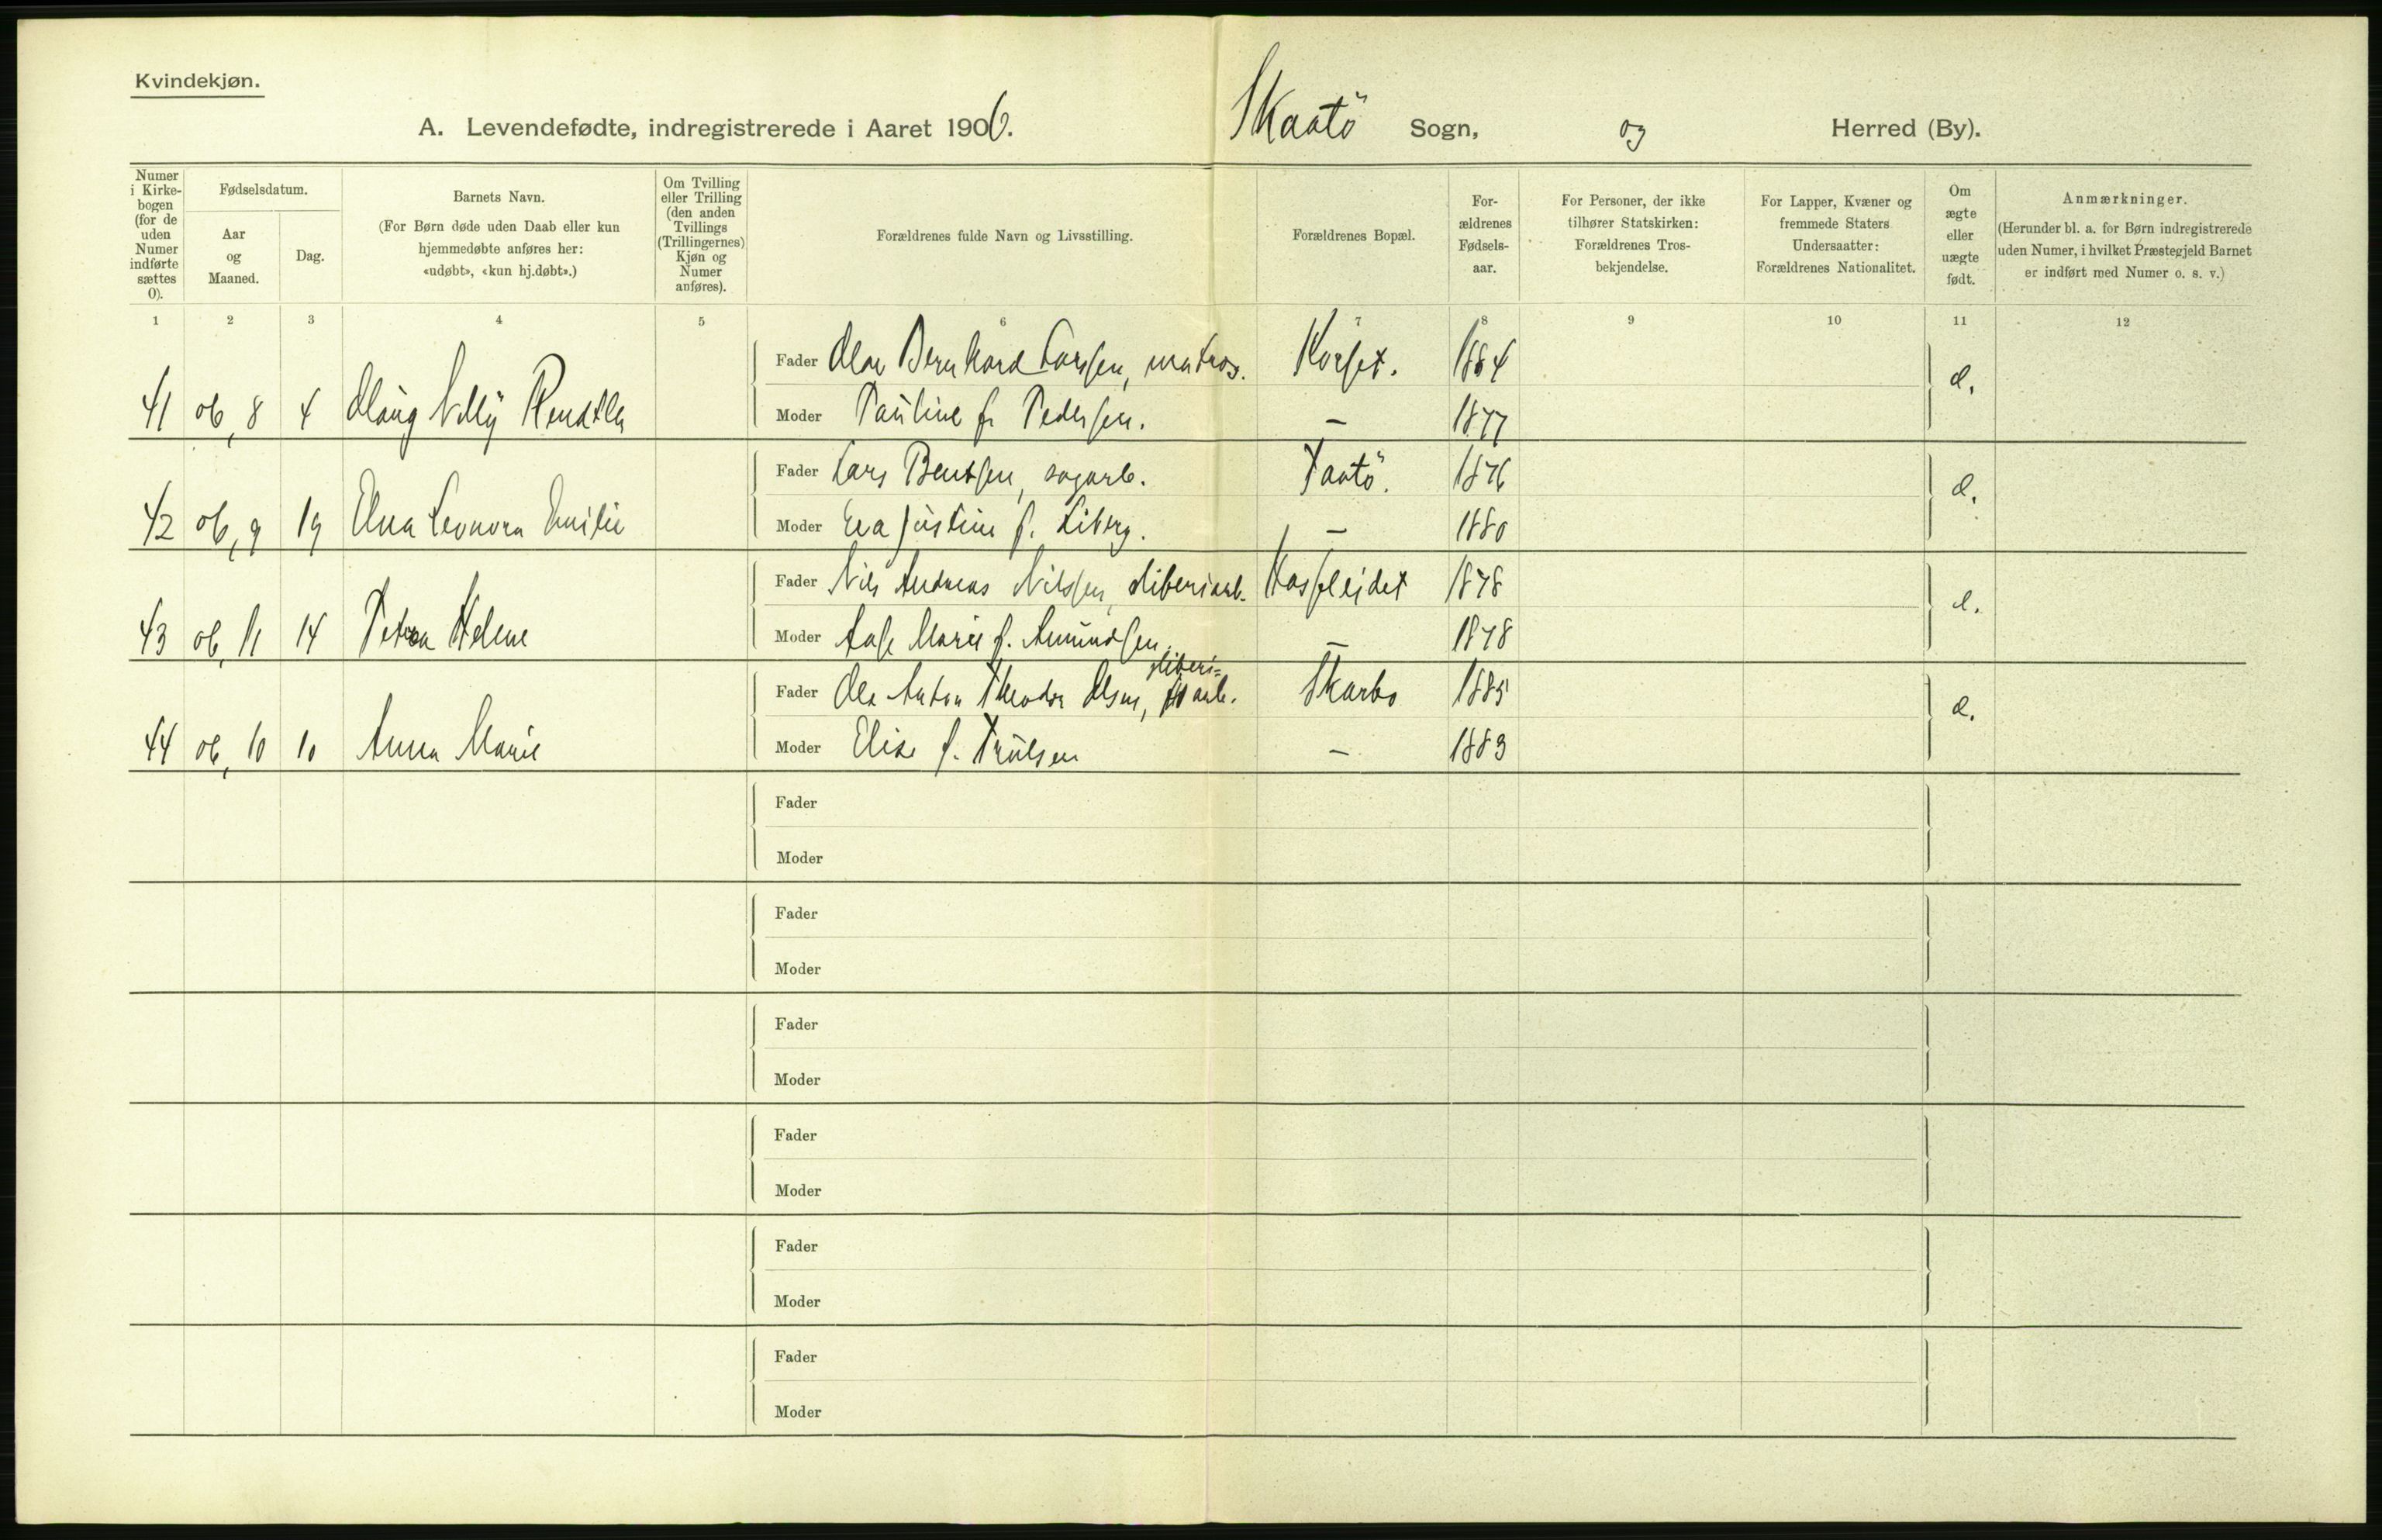 Kvindekjøn.
A. Levendefødte, indregistrerede i Aaret 1906. Skaatö Sogn, og Herred (By).
Numer i Kirke- bogen (for de uden Numer indførte sættes 0).
Fødselsdatum.
Aar og Maaned.
Dag.
Barnets Navn.
(For Børn døde uden Daab eller kun
hjemmedøbte anføres her:
«udøbt», «kun hj.døbt».)
Om Tvilling eller Trilling (den anden Tvillings (Trillingernes) Kjøn og Numer anføres).
Forældrenes fulde Navn og Livsstilling.
Forældrenes Bopæl.
For- ældrenes Fødsels- aar.
For Personer, der ikke
tilhører Statskirken:
Forældrenes Tros-
bekjendelse.
For Lapper, Kvæner og
fremmede Staters
Undersaatter:
Forældrenes Nationalitet.
Om ægte eller uægte født.
Anmærkninger.
(Herunder bl. a. for Børn indregistrerede
uden Numer, i hvilket Præstegjeld Barnet
er indført med Numer o. s. v.)
1 2 3 4 5 6 7 8 9 10 11 12
Fader Olav Bernhard Larssen, matros. Korset. 1884
41 06, 8 4 Nelly
Moder Pauline f. Pedersen. – 1877
Fader Lars Bentsen, sagarb. Taatö. 1876
42 06, 9 19 Elna Leonora Emilie
Moder Eva Justine f. Liberg. – 1880
Fader Nils Andreas Nilssen, sliberiarb. 1878
43 06, 11 14 Petra Helene
Moder Aase Marie f. Amundsen – 1878
sliberi-
Fader Ole Anton Theodor Olsen, arb. Skarbo 1885
44 06, 10 10 Anna Marie
Moder Elise f. Trulsen – 1883
Fader
Moder
Fader
Moder
Fader
Moder
Fader
Moder
Fader
Moder
Fader
Moder